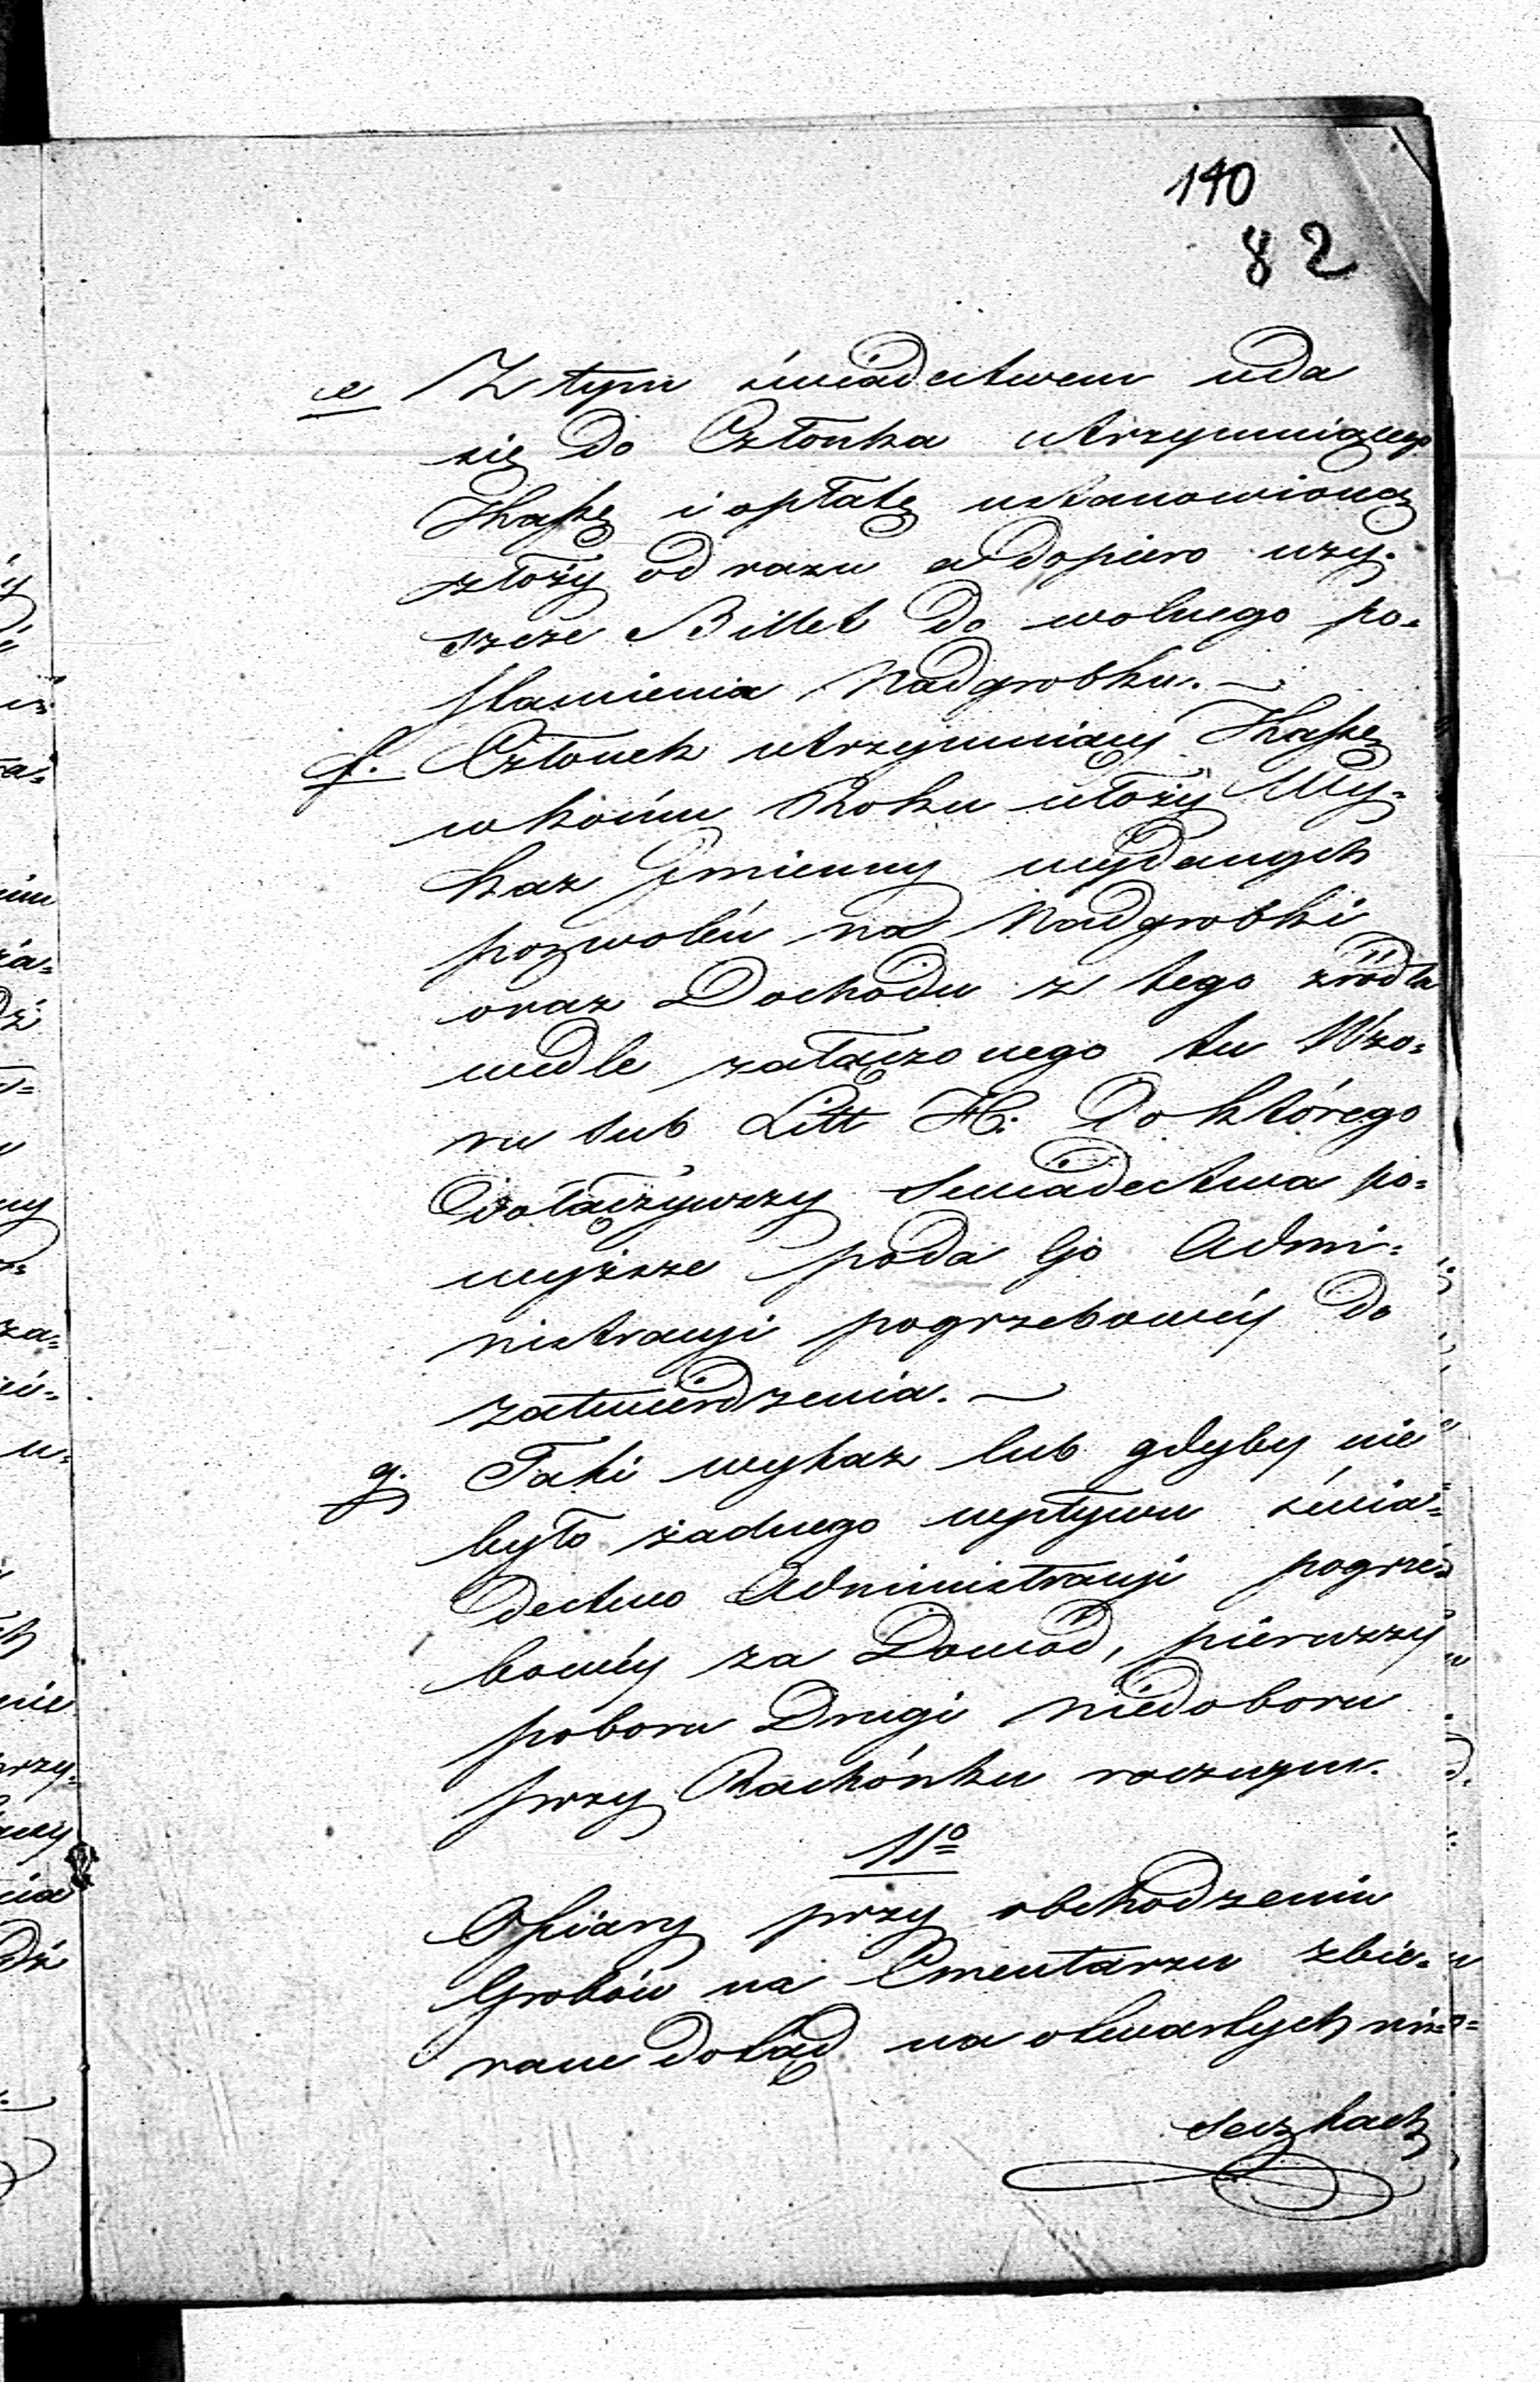 140
82
e Z tym świadectwem uda
się do Członka utrzymuiącego
Kassę i opłatę ustanowioną
złoży od razu a dopiero uzy-
szcze Billet do wolnego po-
stawienia Nadgrobku.
f. Członek utrzymuiący Kassę
w końcu Roku ułoży Wy-
kaz Jmienny wydanych
pozwoleń na Nadgrobki
oraz Dochodu z tego źródła
wedle załączonego tu Wzo-
ru sub Litt H. Do którego
dołączywszy Swiadectwa po-
wyższe poda Go Admi-
nistracyi pogrzebowéy do
zatwierdzenia.
g. Taki wykaz lub gdyby nie
było żadnego wpływu świa-
dectwo Administracyi pogrze-
bowéy za Dowód, pierwszy
poboru Drugi niedoboru
przy Rachónku rocznym.
11º
Ofiary przy obchodzeniu
Grobów na Cmentarzu zbie-
rane dotąd na otwartych mi-
seczkach